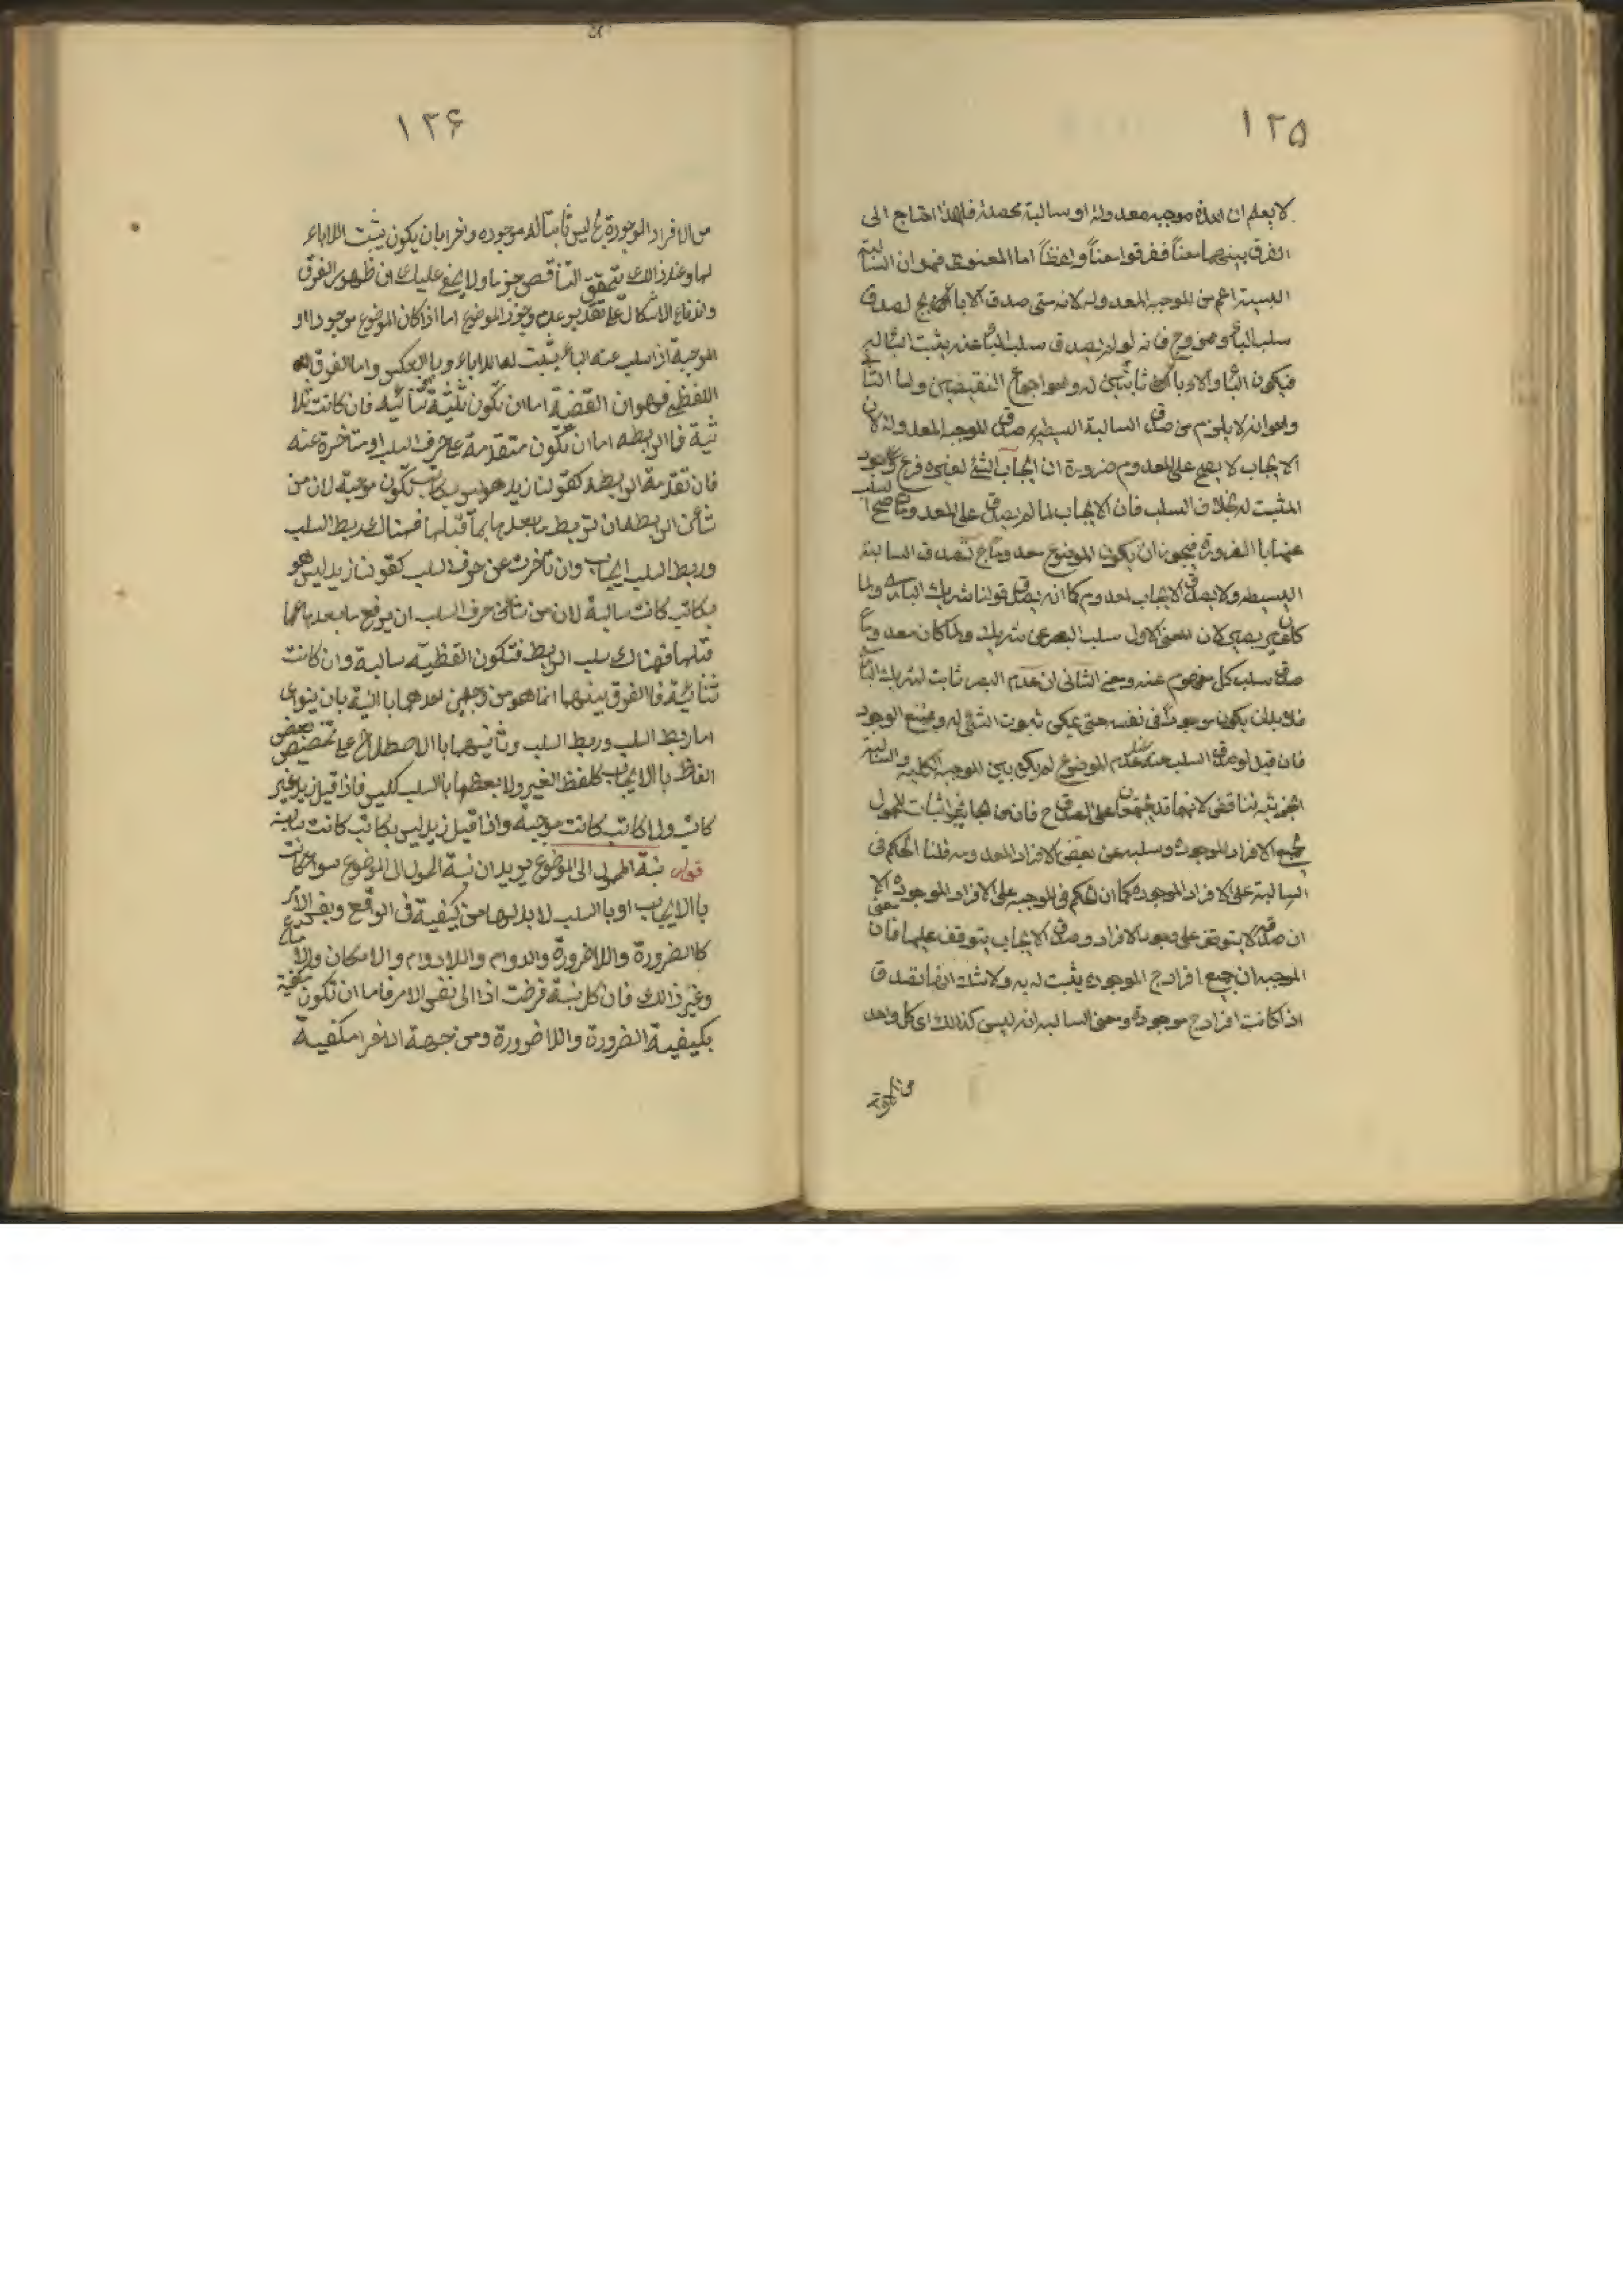 ١٢٥
لا يعلم ان هذه موجبه معدولة او سالبة محصلة فلهذا احتاج الى
الفرق بينهما معناً ففرقوا معناً ولفظاً اما المعنوى فهوان السالبة
البسيطة اعم من الموجبة المعدوله لانه متى صدق الاباء ج لصدق
سلب الباء عن ج فانه لو لم يصدق سلب الباء عنه يثبت الباء له
فيكون الباء والاباء ثابتين له وهو اجماع النقيضين واما الثانى
وهوانه لا يلزم من صدق السالبة البسيطه صدق الموجبه المعدوله لان
الايجاب لا يصح على المعدوم ضرورة ان ايجاب الشئ لغيره فرع وجود
المثبت له بخلاف السلب فان الايجاب لما لم يصدق على المعدومات صح السلب
عنها با الضرورة فيجوز ان يكون الموضوع معدوماً ح تصدق السالبة
البسيطه ولا يصدق الايجاب المعدوم كما انه يصدق قولنا شريك البارى
كان غير بصير لان معنى الاول سلب البصر عن شريك ولما كان معدوماً
صدق سلب كل مفهوم عنه ومعنى الثانى ان عدم البصر ثابت لشريك البارى
فلابدان يكون موجوداً فى نفسه حتى يمكن ثبوت الشئ له وممتنع الوجود
فان قيل لو صدق السلب عند عدم الموضوع لم يكن بين الموجبة الكلية والسالبة
الجزئيه تناقض لانهما قد يجتمعان على الصدق ح فان من الجايز اثبات المحمول
لجميع الافراد الموجودة وسلبه عن بعض الافراد المعدومه قلنا الحكم فى
السالبة على الافراد الموجوده كما ان الحكم فى الموجبه على الافراد الموجودة الا
ان صدق لا يتوقف على وجود الافراد وصدق الايجاب يتوقف عليها فان معنى
الموجبه ان جميع افراد ج الموجوده يثبت له ب ولا شك انما تصدق
اذا كانت افراد ج موجودة ومعنى السالبه انه ليس كذالك اى كل واحد
١٢۶
من الافراد الموجودة ج ليس ثابتاً له موجوده واخرا بان يكون يثبت اللاباء
لها وعند ذالك يتحقق التناقض جزما ولا يخفى عليك ان ظهور الفرق
واندفاع الاشكال على تقدير عدم وجود الموضوع اما اذا كان الموضوع موجودا او
الموجبة اذا سلب عنه الباء يثبت له اللاباء وبا العكس واما الفرق
اللفظى فهوان القضية اما ان تكون ثلثية ثنائيه فان كانت ثلا
ثية فا الرابطه اما ان تكون متقدمة على حرف السلب او متاخرة عنه
فان تقدمة الرابطه كقولنا زيد هو ليس بكاتب تكون موجبة لان من
شأن الرابطه ان تربط ما بعدها بما قبلها فهناك ربط السلب
وربط السلب ايجاب وان تأخرت عن حرف السلب كقولنا زيد ليس هو
بكاتب كانت سالبة لان من شأن حرف السلب ان يرفع ما بعدها عما
قبلها فهناك سلب الربط فتكون القظيه سالبة وان كانت
ثنائيّة فا الفرق بينهما انما هو من وجهين احدهما با النية بان ينوى
اما ربط السلب وربط السلب وثانيهما با الاصطلاح على تخصيص بعض
الفاظ با الايجاب كلفظ الغير ولا بعظها با السلب كليس فاذا قيل زيد غير
كاتب ولا كاتب كانت موجبة واذا قيل زيد ليس بكاتب كانت سالبة
قوله نسبة المحمول الى الموضوع يريد ان نسبة المحمول الى الموضوع سواء كانت
با الايجاب او با السلب لابد لها من كيفية فى الواقع ونفس الامر
كا الضرورة واللاضرورة والدوام واللادوام والامكان والامتناع
وغير ذالك فان كل نسبة فرضت اذا الى نفس الامر فاما ان تكون مكفية
بكيفية الضرورة واللا ضرورة ومن جهة اخرا مكفية